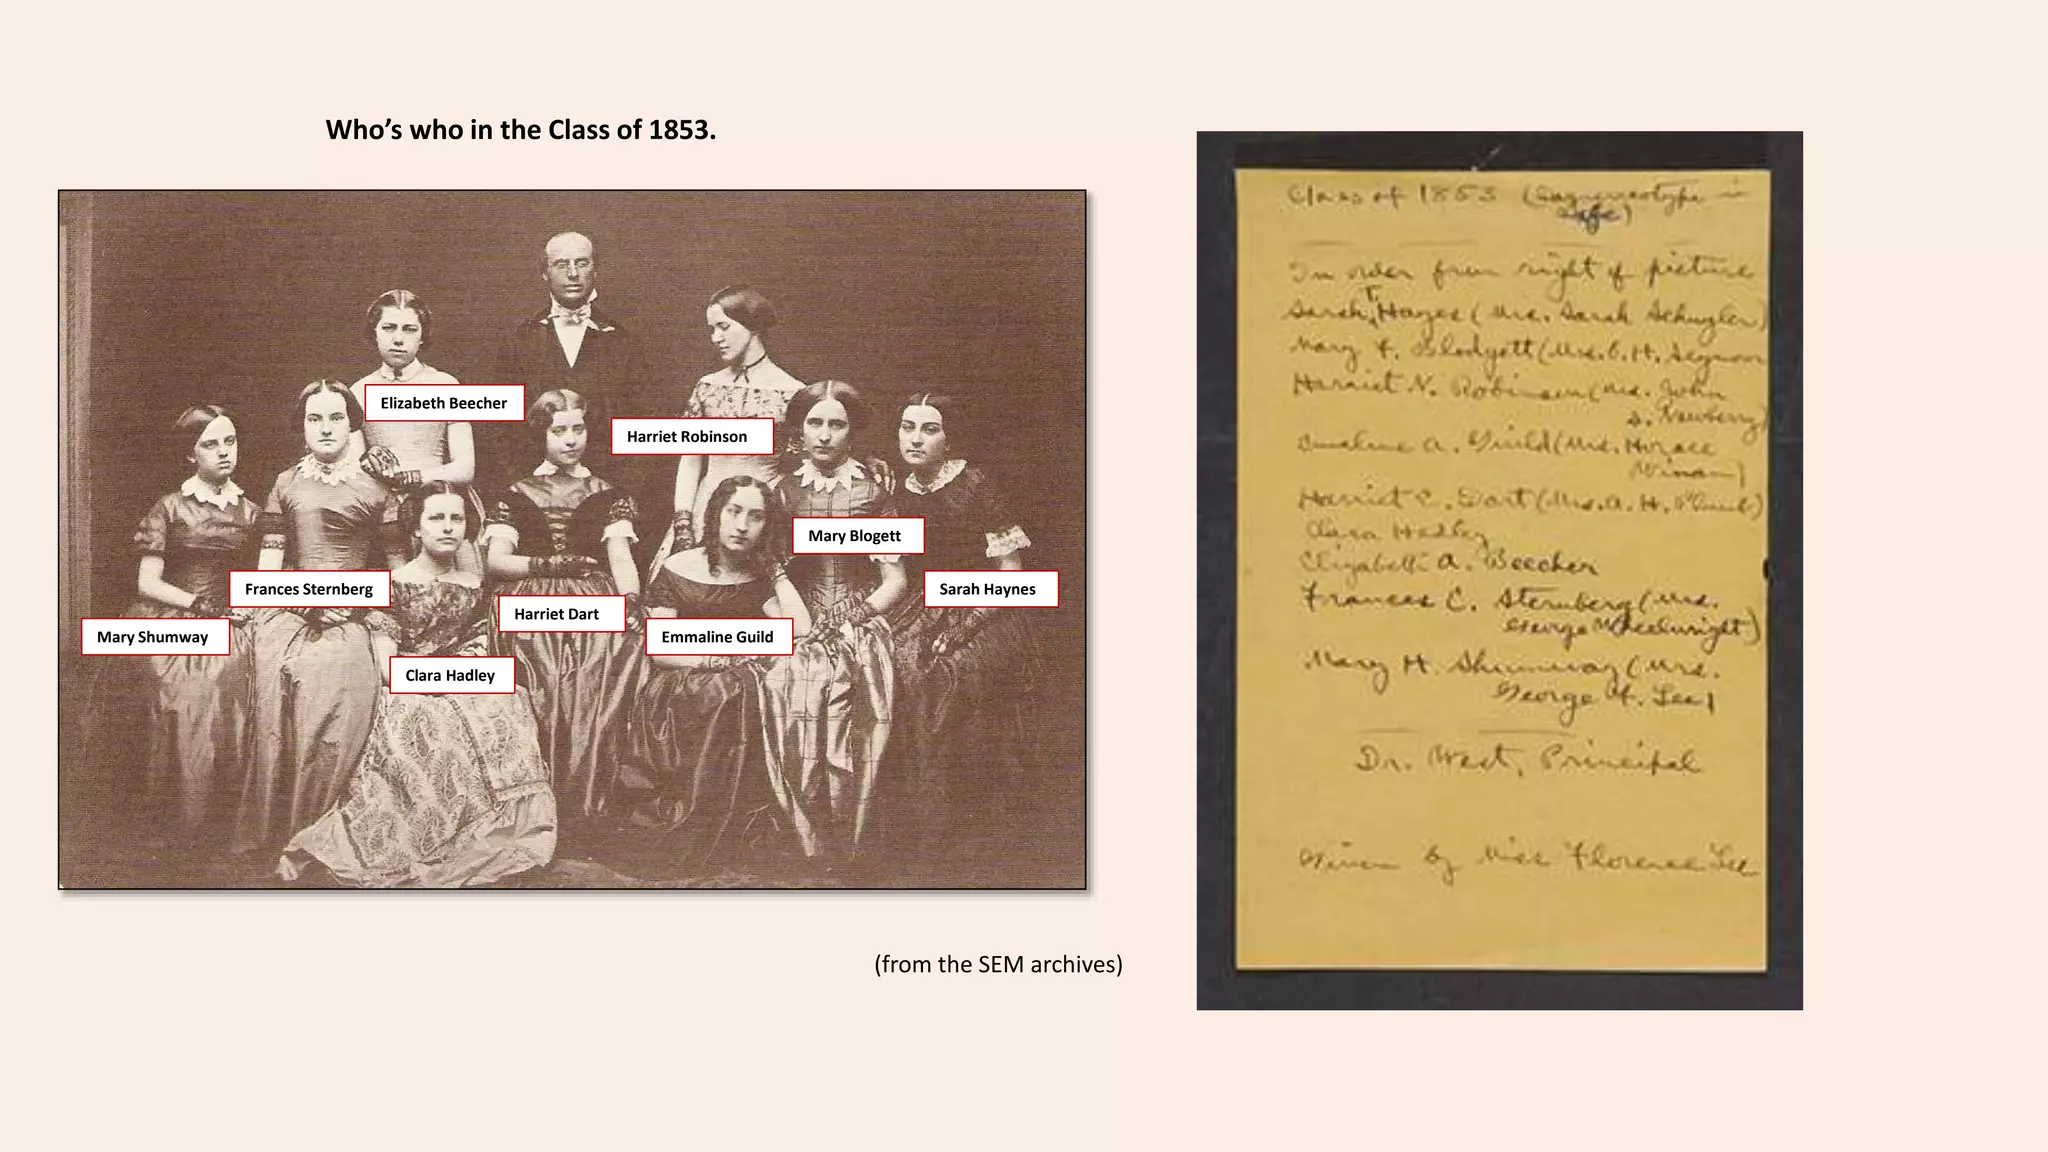 Who's who in the Class of 1853.
Elizabeth Beecher
Harriet Robinson
Mary Blogett
Frances Sternberg
Sarah Haynes
Harriet Dart
Mary Shumway
Emmaline Guild
Clara Hadley
(from the SEM archives)
Class of 1853 (Daguerreotype in
safe)
In order from right of picture
Sarah T. Hayes (Mrs. Sarah Schuyler)
Mary F. Blodgett (Mrs. C. H. Seymour
Harriet N. Robinson (Mrs. John
S. Newberry)
Emeline A. Guild (Mrs. Horace
Harriet C. Dart (Mrs. A. H.
Clara Hadley
Elizabeth A. Beecher
Frances C. Sternberg (Mrs.
George Wheelwright)
Mary H. Shumway (Mrs.
George H. Lee)
Dr. West, Principal
Given by Miss Florence Lee